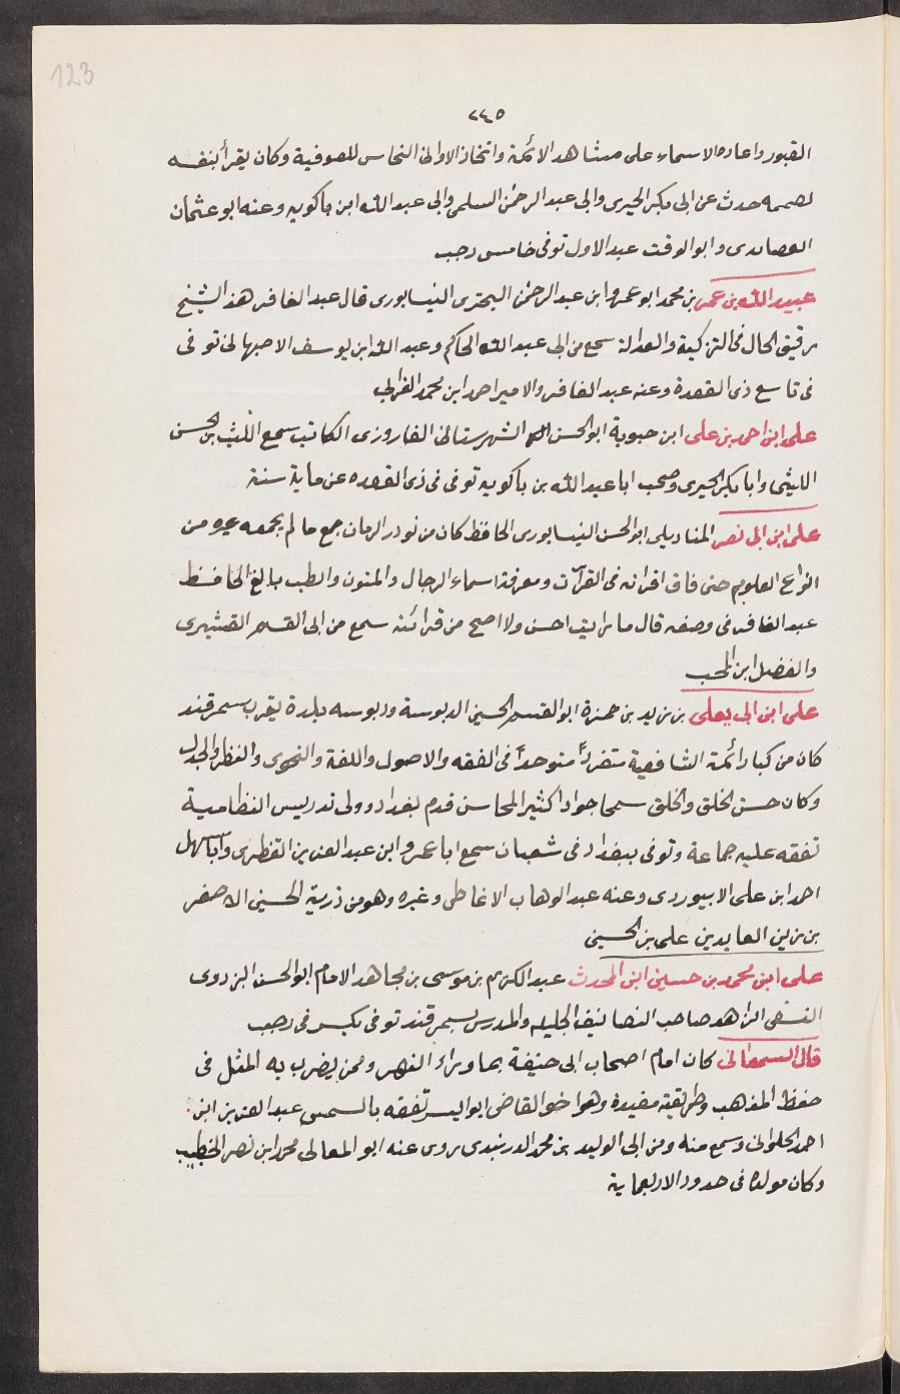 123
٢٤٥
القبور واعادة الاسماء على مشاهد الائمة واتخاذ الاوانى النحاس للصوفية وكان يقرأ بنفسه
لصممه حدث عن ابى بكر الحيرى وابى عبد الرحمن السلمى وابى عبد الله ابن باكويه وعنه ابو عثمان
العصائدى وابو الوقت عبد الاول توفى خامس رجب
عبيد الله بن عمر بن محمد ابو عمرو ابن عبد الرحمن البحترى النيسابورى قال عبد الغافر هذ الشيخ
رقيق الحال فى التزكية والعدالة سمع من ابى عبد الله الحاكم وعبد الله ابن يوسف الاصبهانى توفى
فى تاسع ذى القعدة وعنه عبد الغافر والامير احمد ابن محمد الفراتى
على ابن احمد بن على ابن حبوية ابو الحسن الشهرستانى الفاروزى الكاتب سمع الليث بن الحسن
الليثى وابا بكر الحيرى وصحب ابا عبد الله بن باكويه توفى فى ذى القعده عن ماية سنة
على ابن ابى نصر المناديلى ابو الحسن النيسابورى الحافظ كان من نودر الزمان جمع ما لم يجمعه غيره من
انواع العلوم حتى فاق اقرانه فى القرآت ومعرفة اسماء الرجال والمتون والطب بالغ الحافظ
عبد الغافر فى وصفه قال ما رايت احسن ولا اصح من قرائته سمع من ابى القسم القشيرى
والفضل ابن المحب
على ابن ابى يعلى بن زيد بن حمزة ابو القسم الحسينى الدبوسة ودبوسه بلدة بقرب سمرقند
كان من كبار ائمة الشافعية متفردًا متوحدًا فى الفقه والاصول واللغة والنحوى والنظر والجدل
وكان حسن الخلق والخلق سمحا جوادا كثير المحاسن قدم بغداد وولى تدريس النظامية
تفقه عليه جماعة وتوفى ببغداد فى شعبان سمع ابا عمرو ابن عبد العزيز القنطرى وابا سهل
احمد ابن على الابيوردى وعنه عبد الوهاب الانماطى وغيره وهو من ذرية الحسين الاصغر
بن زين العابدين على بن الحسين
على ابن محمد بن حسين ابن المحدث عبد الكريم بن موسى بن مجاهد الامام ابو الحسن البزدوى
النسفى الزاهد صاحب التصانيف الجليله والمدرس بسمرقند توفى بكس فى رجب
قال السمعانى كان امام اصحاب ابى حنيفة بما وراء النهر وممن يضرب به المثل فى
حفظ المذهب وطريقته مفيدة وهو اخو القاضى ابو اليسر تفقه بالسمس عبد العزيز ابن
احمد الحلوانى وسمع منه ومن ابى الوليد بن محمد الدربندى روى عنه ابو المعالى محمد ابن نصر الخطيب
وكان مولده فى حدود الاربعماية